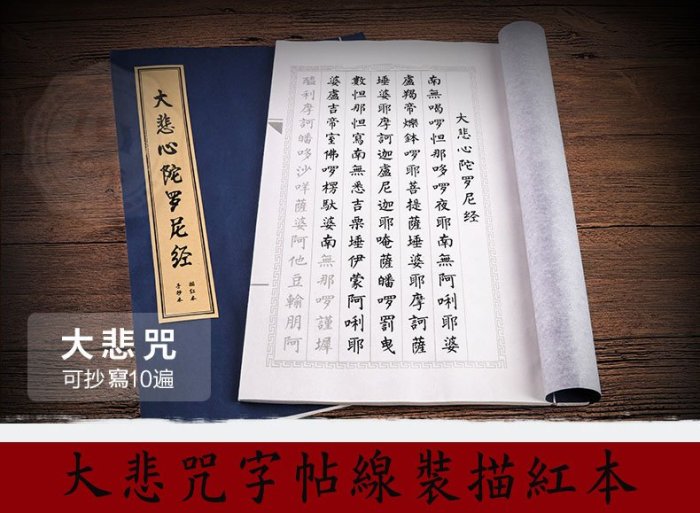 大悲心陀罗尼经
描红本
手抄本
大悲心陀罗尼经
南無喝啰怛那哆啰夜耶南無阿唎耶婆
盧羯帝爍鉢啰耶菩提薩埵婆耶摩訶薩
埵婆耶摩訶迦盧尼迦耶唵薩皤啰罰曳
數怛那怛寫南無悉吉栗埵伊蒙阿唎耶
婆盧吉帝室佛啰楞馱婆南無那啰謹墀
醯利摩訶皤哆沙咩薩婆阿他豆輸朋阿
大悲咒
可抄寫10遍
大悲咒字帖線裝描紅本